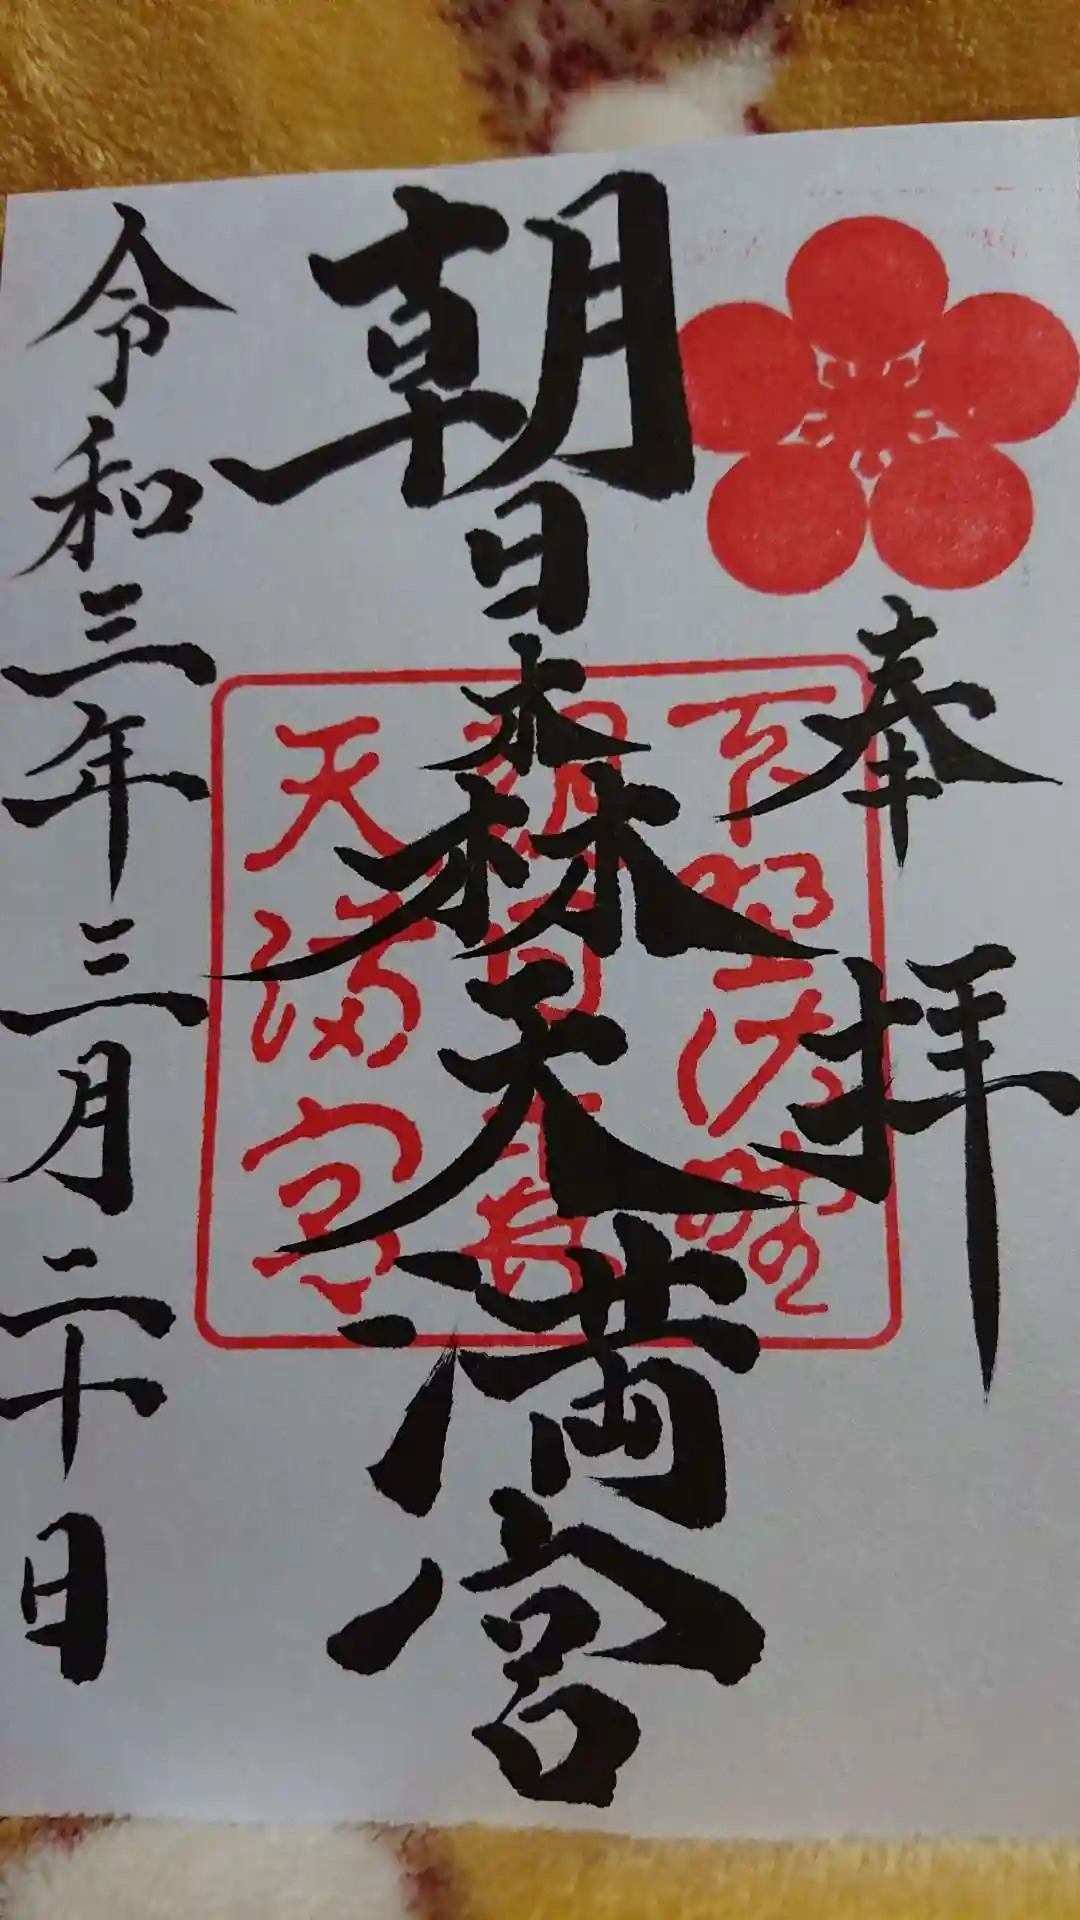 奉拝
朝日森天満宮
下野佐野
朝日森
天満宮
令和三年三月二十日